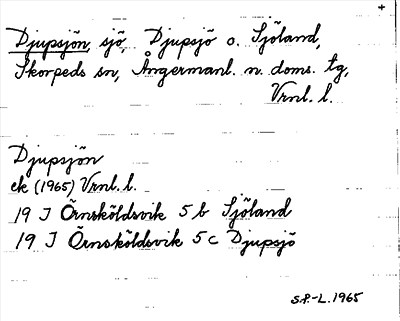 Djupsjön, sjö, Djupsjö o. Sjöland,
Skorpeds sn, Ångermanl. n. doms. tg,
Vrnl. l.
Djupsjön
ek (1965) Vrnl. l.
19 J Örnsköldsvik 5 b Sjöland
19 J Örnsköldsvik 5 c Djupsjö
S.P.-L. 1965